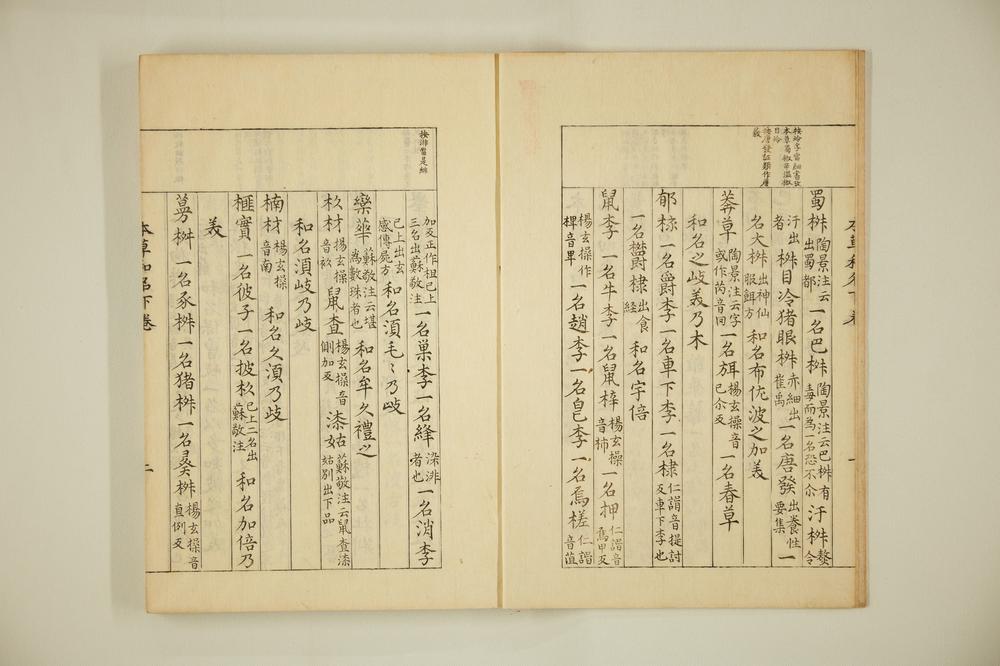 按冷字當細書改
本草蜀椒帝温椒
曰冷
按唐發証類作唐
蔱
蜀椒陶景注云出蜀都一名巴椒陶景注云巴椒有毒而為一名恐不尒汗椒熬令
汗出者椒目冷猪眼椒赤細出崔禹一名唐發出養性要集一
名大椒出神仙服餌方和名布佐波之加美
莽草陶景注云字或作䒽音囘一名茸楊玄操音已尒反一名春草
和名之岐美乃木
郁核一名爵李一名車下李一名棣仁諝音提討反車下李也
一名欎棣出食經和名宇倍
鼠李一名牛李一名鼠梓楊玄操音柿一名押仁諝音烏甲反
楊玄操作椑音卑一名趙李一名皂李一名烏槎仁諝音葅
按淠當是緋
加反正作柤已上三名出蘇敬注一名巢李一名絳染淠者也一名消李
已上出玄感傳屍方和名須毛〻乃岐
欒華蘇敬注云堪為數珠者也和名牟久禮之
杉材楊玄操音衫鼠查楊玄操音側加反漆姑蘇敬注云鼠查漆姑別出下品
和名須岐乃岐
楠材楊玄操音南和名久須乃岐
榧實一名彼子一名披杉已上二名出蘇敬注和名加倍乃
義
蔓椒一名豕椒一名猪椒一名彘椒楊玄操音直例反
本草和名下卷